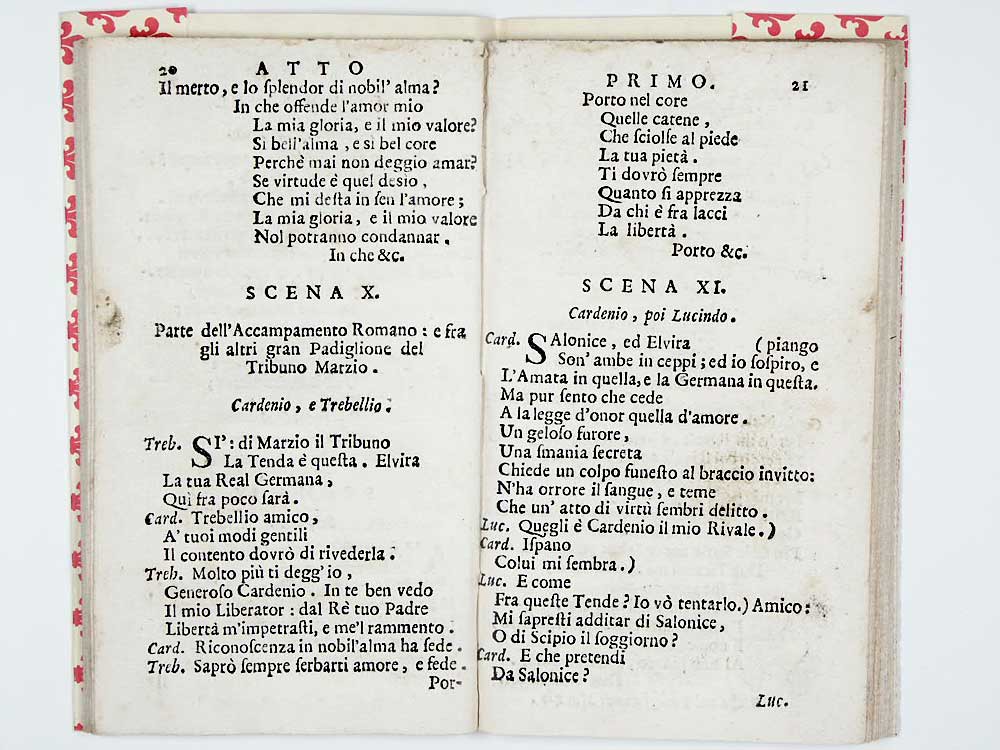 20 ATTO
Il merto, e lo ſplendor di nobil' alma?
In che offende l'amor mio
La mia gloria, e il mio valore?
Sì bell'alma, e sì bel core
Perchè mai non deggio amar?
Se virtude è quel deſio,
Che mi deſta in ſen l'amore;
La mia gloria, e il mio valore
Nol potranno condannar.
In che &c.
SCENA X.
Parte dell'Accampamento Romano: e fra
gli altri gran Padiglione del
Tribuno Marzio.
Cardenio, e Trebellio.
Treb. SI': di Marzio il Tribuno
La Tenda è queſta. Elvira
La tua Real Germana,
Quì fra poco ſarà.
Card. Trebellio amico,
A' tuoi modi gentili
Il contento dovrò di rivederla.
Treb. Molto più ti degg'io,
Generoſo Cardenio. In te ben vedo
Il mio Liberator: dal Rè tuo Padre
Libertà m'impetraſti, e me'l rammento.
Card. Riconoſcenza in nobil'alma ha ſede.
Treb. Saprò ſempre ſerbarti amore, e fede.
Por-
PRIMO. 21
Porto nel core
Quelle catene,
Che ſciolſe al piede
La tua pietà.
Ti dovrò ſempre
Quanto ſi apprezza
Da chi è fra lacci
La libertà.
Porto &c.
SCENA XI.
Cardenio, poi Lucindo.
Card. SAlonice, ed Elvira (piango
Son' ambe in ceppi; ed io ſoſpiro, e
L'Amata in quella, e la Germana in queſta.
Ma pur ſento che cede
A la legge d'onor quella d'amore.
Un geloſo furore,
Una ſmania ſecreta
Chiede un colpo funeſto al braccio invitto:
N'ha orrore il ſangue, e teme
Che un' atto di virtù ſembri delitto.
Luc. Quegli è Cardenio il mio Rivale.)
Card. Iſpano
Colui mi ſembra.)
Luc. E come
Fra queſte Tende? Io vò tentarlo.) Amico:
Mi ſapreſti additar di Salonice,
O di Scipio il ſoggiorno?
Card. E che pretendi
Da Salonice?
Luc.